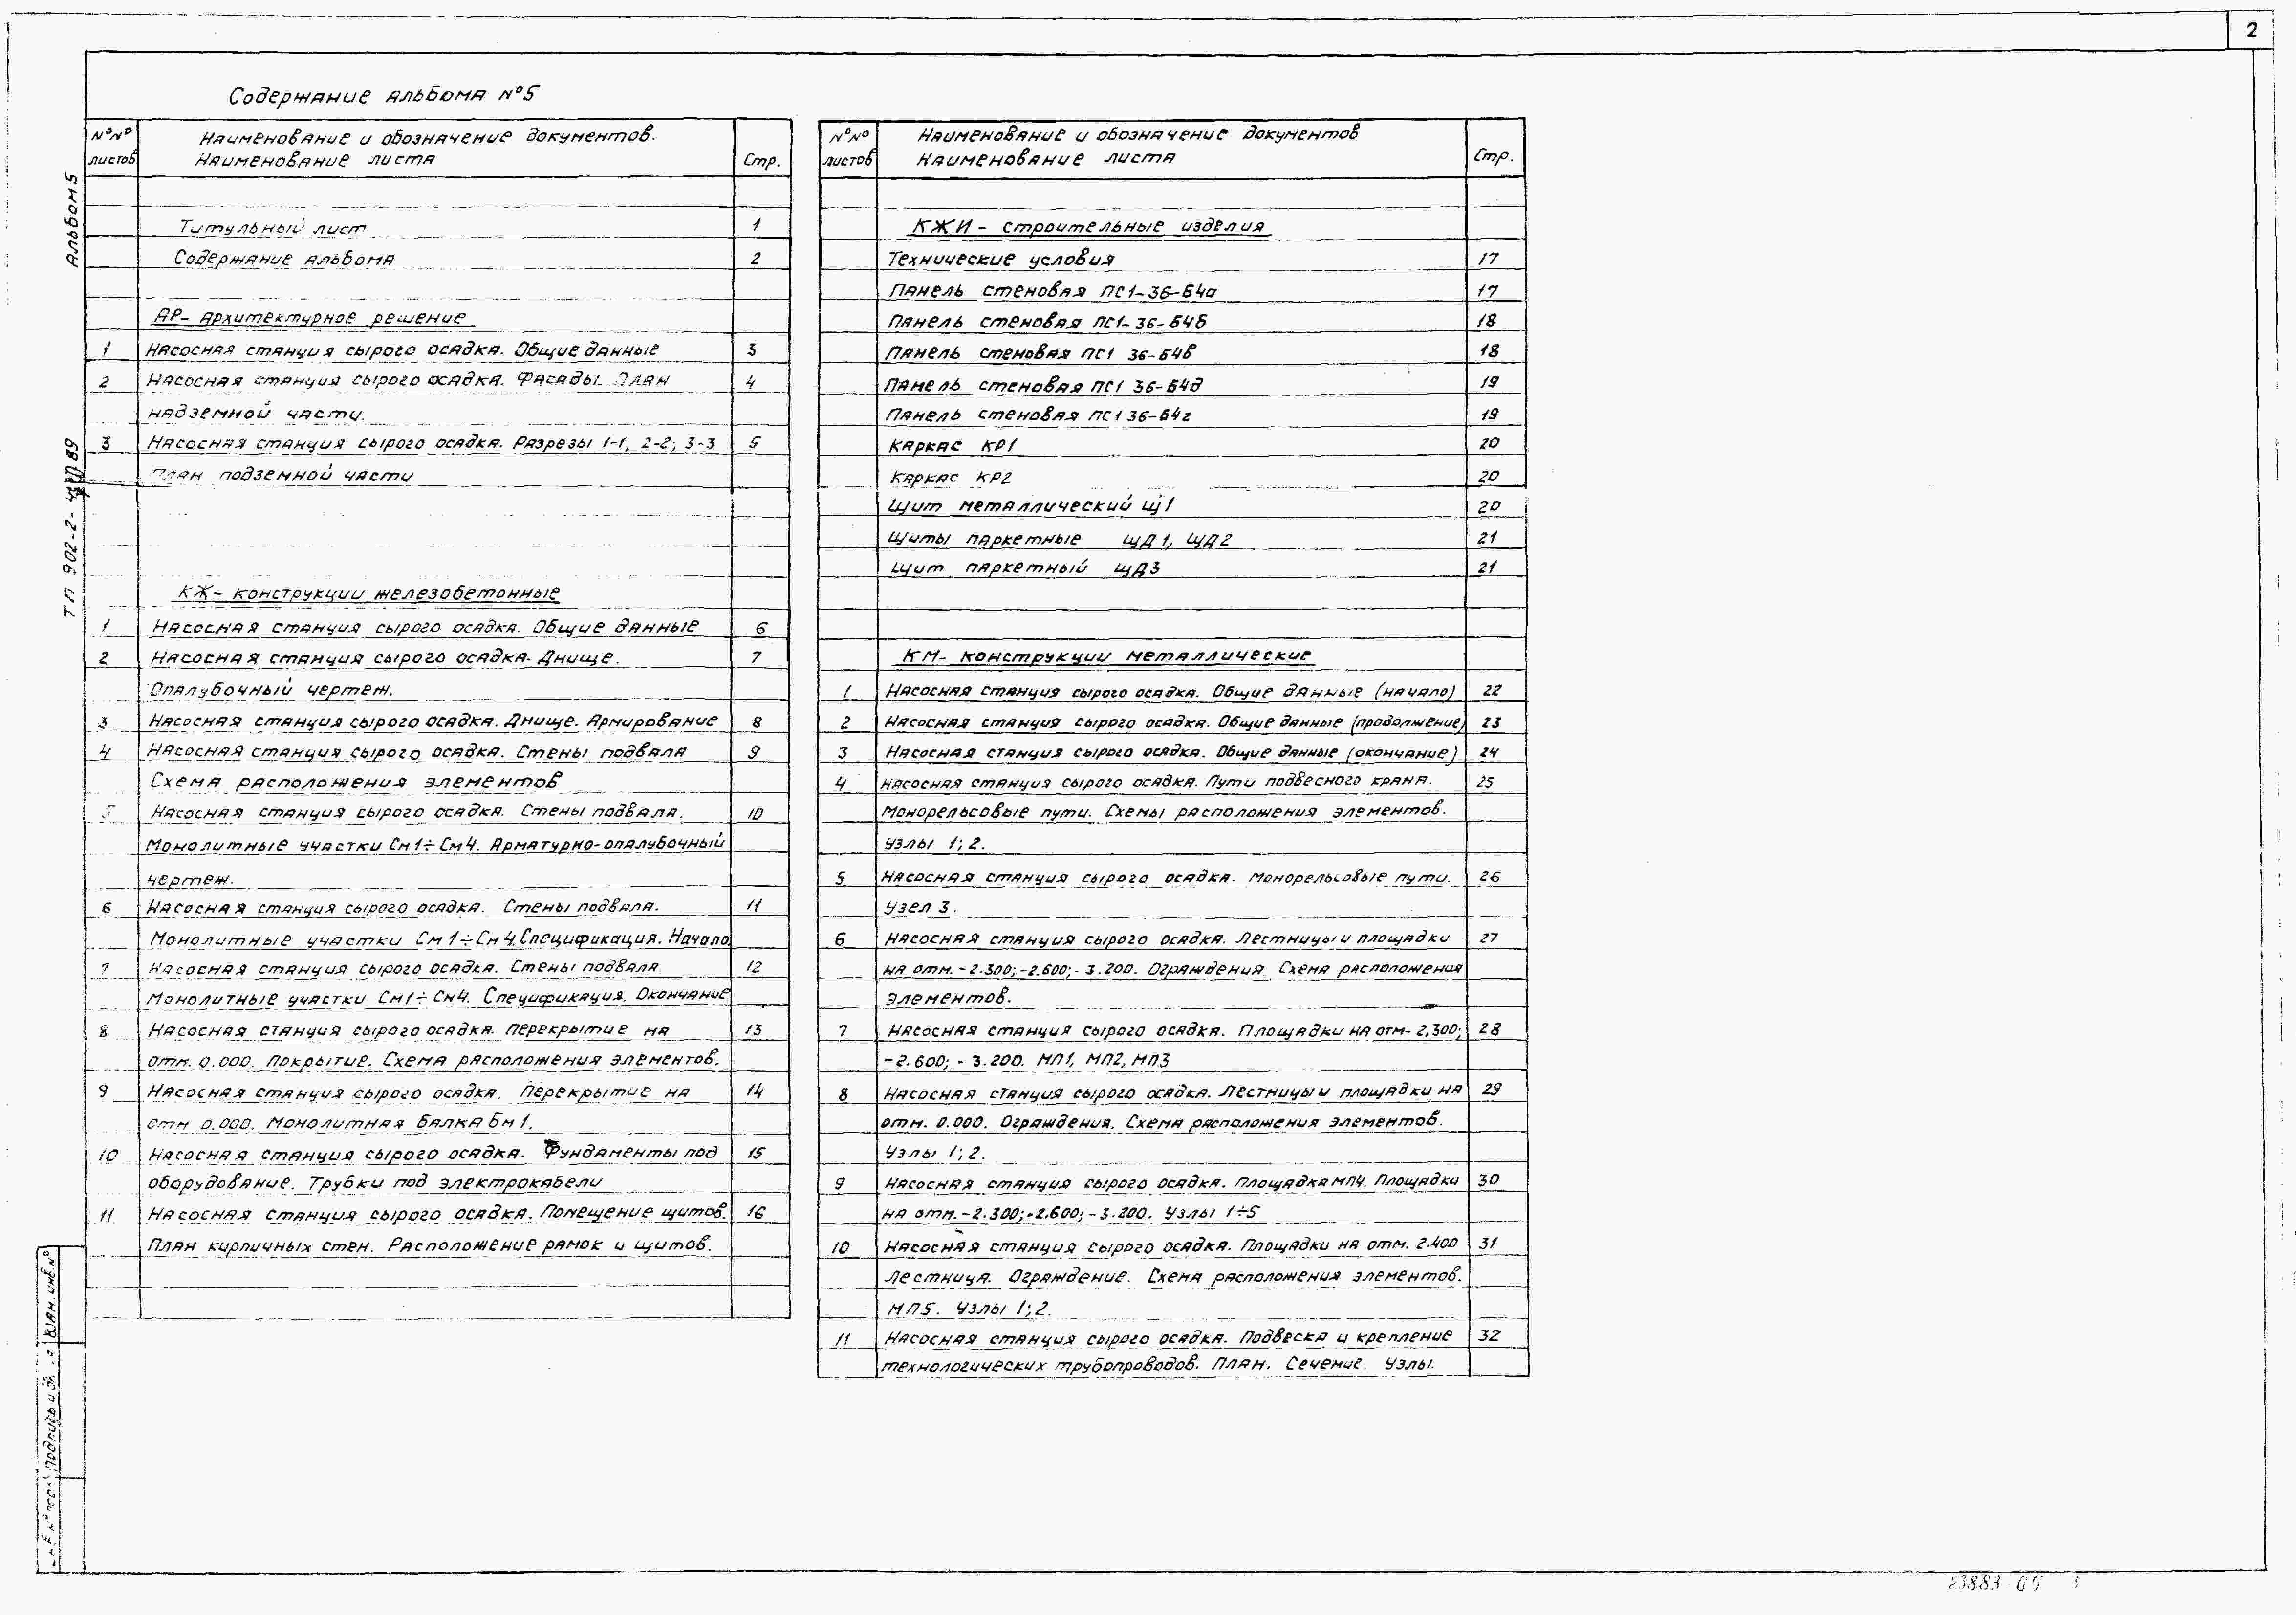 2
Содержание альбома №5
№№ листов
Наименование и обозначение документов.
Наименование листа
Стр.
Титульный лист 1
Содержание альбома 2
АР- Архитектурное решение
1 Насосная станция сырого осадка. Общие данные 3
2 Насосная станция сырого осадка. Фасады. План 4
надземной части.
3 Насосная станция сырого осадка. Разрезы 1-1; 2-2; 3-3 5
План подземной части
КЖ- конструкции железобетонные
1 Насосная станция сырого осадка. Общие данные 6
2 Насосная станция сырого осадка. Днище. 7
Опалубочный чертеж.
3 Насосная станция сырого осадка. Днище. Армирование 8
4 Насосная станция сырого осадка. Стены подвала 9
Схема расположения элементов
5 Насосная станция сырого осадка. Стены подвала. 10
Монолитные участки См1÷См4. Арматурно-опалубочный
чертеж.
6 Насосная станция сырого осадка. Стены подвала. 11
Монолитные участки См1÷См4. Спецификация. Начало
7 Насосная станция сырого осадка. Стены подвала 12
Монолитные участки См1÷См4. Спецификация. Окончание
8 Насосная станция сырого осадка. Перекрытие на 13
отм. 0.000. Покрытие. Схема расположения элементов.
9 Насосная станция сырого осадка. Перекрытие на 14
отм 0.000. Монолитная балка Бм1.
10 Насосная станция сырого осадка. Фундаменты под 15
оборудование. Трубки под электрокабели
11 Насосная станция сырого осадка. Помещение щитов. 16
План кирпичных стен. Расположение рамок и щитов.
№№ листов
Наименование и обозначение документов
Наименование листа
Стр.
КЖИ- строительные изделия
Технические условия 17
Панель стеновая ПС1-36-Б4а 17
Панель стеновая ПС1-36-Б4б 18
Панель стеновая ПС1 36-Б4в 18
Панель стеновая ПС1 36-Б4д 19
Панель стеновая ПС1 36-Б4г 19
Каркас КР1 20
Каркас КР2 20
Щит металлический Щ1 20
Щиты паркетные ЩД1, ЩД2 21
Щит паркетный ЩД3 21
КМ- конструкции металлические
1 Насосная станция сырого осадка. Общие данные (начало) 22
2 Насосная станция сырого осадка. Общие данные (продолжение) 23
3 Насосная станция сырого осадка. Общие данные (окончание) 24
4 Насосная станция сырого осадка. Пути подвесного крана. 25
Монорельсовые пути. Схемы расположения элементов.
Узлы 1; 2.
5 Насосная станция сырого осадка. Монорельсовые пути. 26
Узел 3.
6 Насосная станция сырого осадка. Лестницы и площадки 27
на отм. -2.300; -2.600; -3.200. Ограждения. Схема расположения
элементов.
7 Насосная станция сырого осадка. Площадки на отм- 2,300; 28
-2.600; -3.200. МП1, МП2, МП3
8 Насосная станция сырого осадка. Лестницы и площадки на 29
отм. 0.000. Ограждения. Схема расположения элементов.
Узлы 1; 2.
9 Насосная станция сырого осадка. Площадка МП4. Площадки 30
на отм. -2.300; -2.600; -3.200. Узлы 1÷5
10 Насосная станция сырого осадка. Площадки на отм. 2.400 31
Лестница. Ограждение. Схема расположения элементов.
МП5. Узлы 1; 2.
11 Насосная станция сырого осадка. Подвеска и крепление 32
технологических трубопроводов. План. Сечение. Узлы.
Альбом 5
ТП 902-2- 89
Взам. инв. №
Подпись и
23883-05